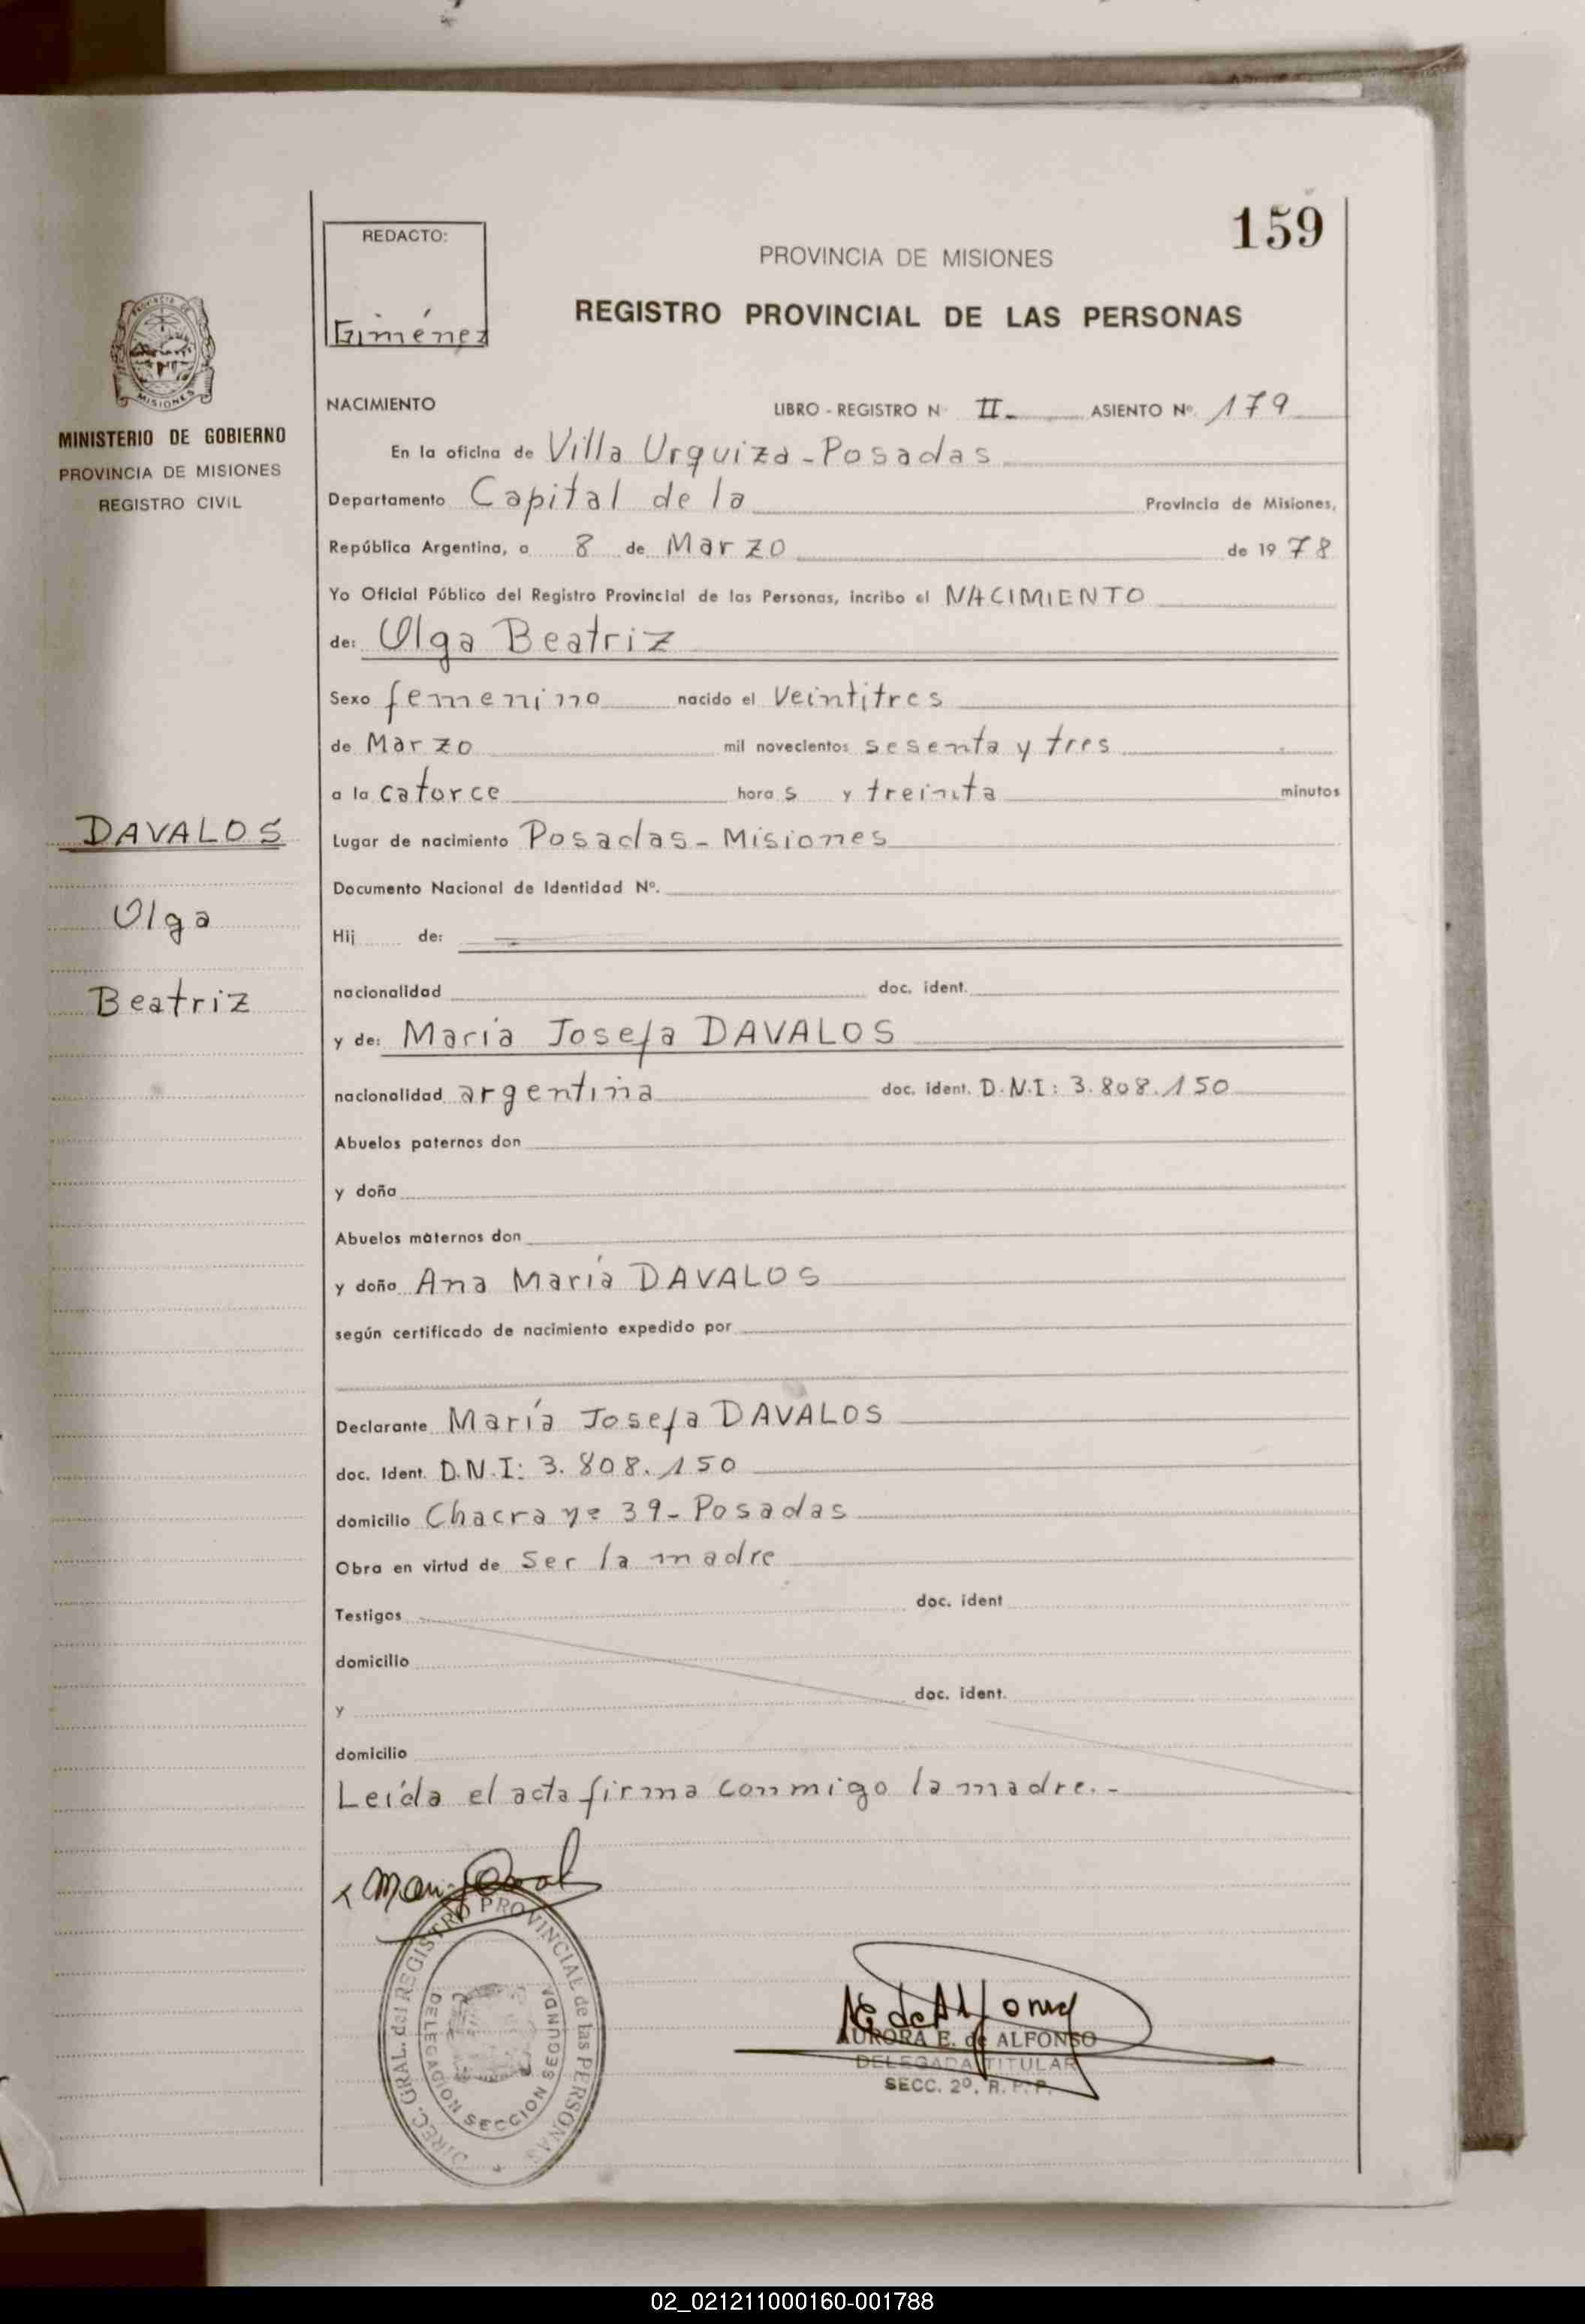 159
REDACTO:
Giménez
PROVINCIA DE MISIONES
REGISTRO PROVINCIAL DE LAS PERSONAS
MISIONES
MINISTERIO DE GOBIERNO
PROVINCIA DE MISIONES
REGISTRO CIVIL
DAVALOS
Olga
Beatriz
NACIMIENTO LIBRO - REGISTRO N II- ASIENTO Nº. 179
En la oficina de Villa Urquiza - Posadas
Departamento Capital de la Provincia de Misiones,
República Argentina, a 8 de Marzo de 19 78
Yo Oficial Público del Registro Provincial de las Personas, incribo el NACIMIENTO
de: Olga Beatriz
Sexo femenino nacido el veintitres
de Marzo mil novecientos sesenta y tres
a la catorce hora s y treinta minutos
Lugar de nacimiento Posadas - Misiones
Documento Nacional de Identidad Nº.
Hij de:
nacionalidad doc. ident.
y de: María Josefa DAVALOS
nacionalidad argentina doc. ident. D.N.I: 3.808.150
Abuelos paternos don
y doña
Abuelos maternos don
y doña Ana María DAVALOS
según certificado de nacimiento expedido por
Declarante María Josefa DAVALOS
doc. Ident. D.N.I: 3.808.150
domicilio Chacra nº 39 - Posadas
Obra en virtud de ser la madre
Testigos doc. ident
domicilio
y doc. ident.
domicilio
Leída el acta firma conmigo la madre.-
DIREC. GRAL. del REGISTRO PROVINCIAL de las PERSONAS
DELEGACION SECCION SEGUNDA
AURORA E. de ALFONSO
DELEGADA TITULAR
SECC. 2º. R. P. P.
02_021211000160-001788